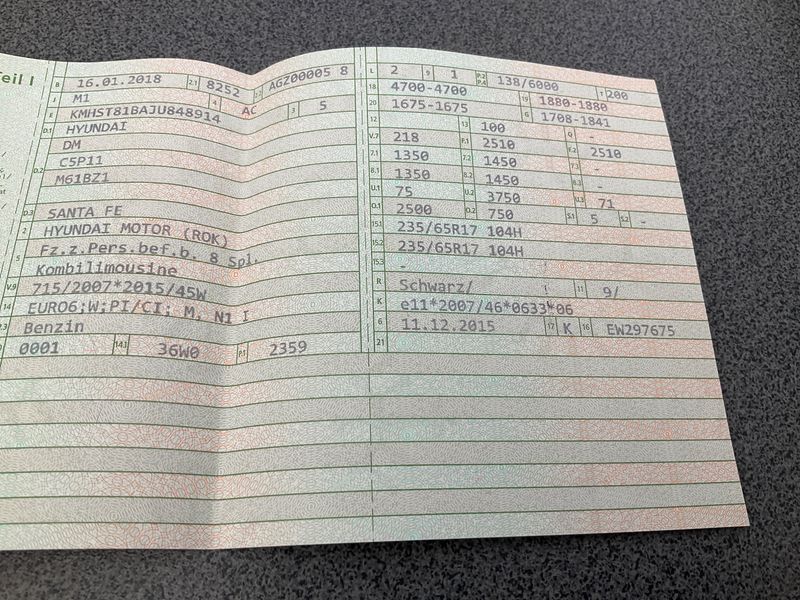 Teil I
B 16.01.2018 2.1 8252 2.2 AGZ00005 8
J M1 4 AC
E KMHST81BAJU848914 3 5
D.1 HYUNDAI
DM
D.2 C5P11
M61BZ1
D.3 SANTA FE
2 HYUNDAI MOTOR (ROK)
5 Fz.z.Pers.bef.b. 8 Spl.
Kombilimousine
V.9 715/2007*2015/45W
14 EURO6;W;PI/CI; M, N1 I
P.3 Benzin
0001 14.1 36W0 P.1 2359
L 2 9 1 P.2 P.4 138/6000 T 200
18 4700-4700 19 1880-1880
20 1675-1675 G 1708-1841
12 13 100 Q -
V.7 218 F.1 2510 F.2 2510
7.1 1350 7.2 1450 7.3 -
8.1 1350 8.2 1450 8.3 -
U.1 75 U.2 3750 U.3 71
O.1 2500 O.2 750 S.1 5 S.2 -
15.1 235/65R17 104H
15.2 235/65R17 104H
15.3 -
R Schwarz/ ! 11 9/
K e11*2007/46*0633*06
6 11.12.2015 17 K 16 EW297675
21